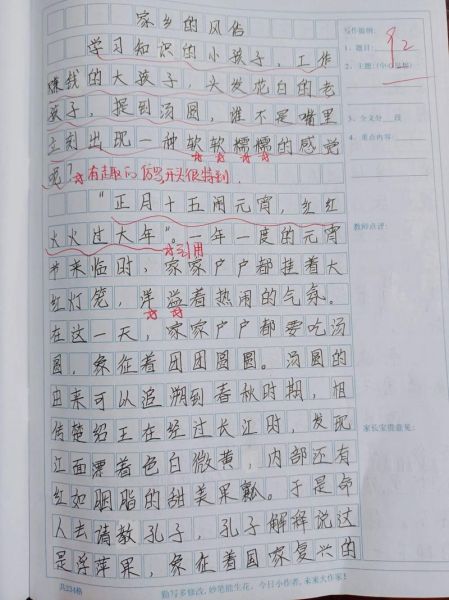 家乡的风俗
学习知识的小孩子，工作
赚钱的大孩子，头发花白的老
孩子，提到汤圆，谁不是嘴里
立刻出现一种软软糯糯的感觉
呢？
有趣的仿写开头很特别
“正月十五闹元宵，红红
火火过大年”。一年一度的元宵
引用
节来临时，家家户户都挂着大
红灯笼，洋溢着热闹的气氛。
在这一天，家家户户都要吃汤
圆，象征着团团圆圆。汤圆的
由来可以追溯到春秋时期，相
传楚绍王在经过长江时，发现
江面漂着色白微黄，内部还有
红如胭脂的甜美果瓤。于是命
人去请教孔子，孔子解释说这
是浮萍果，象征着国家复兴的
写作提纲：
1．题目：
2．主题：(中心思想)
3．全文分__段
4．重点内容：
92
教师点评：
家长宝贵意见：
共234格
勤写多修改，妙笔能生花，今日小作者，未来大作家！